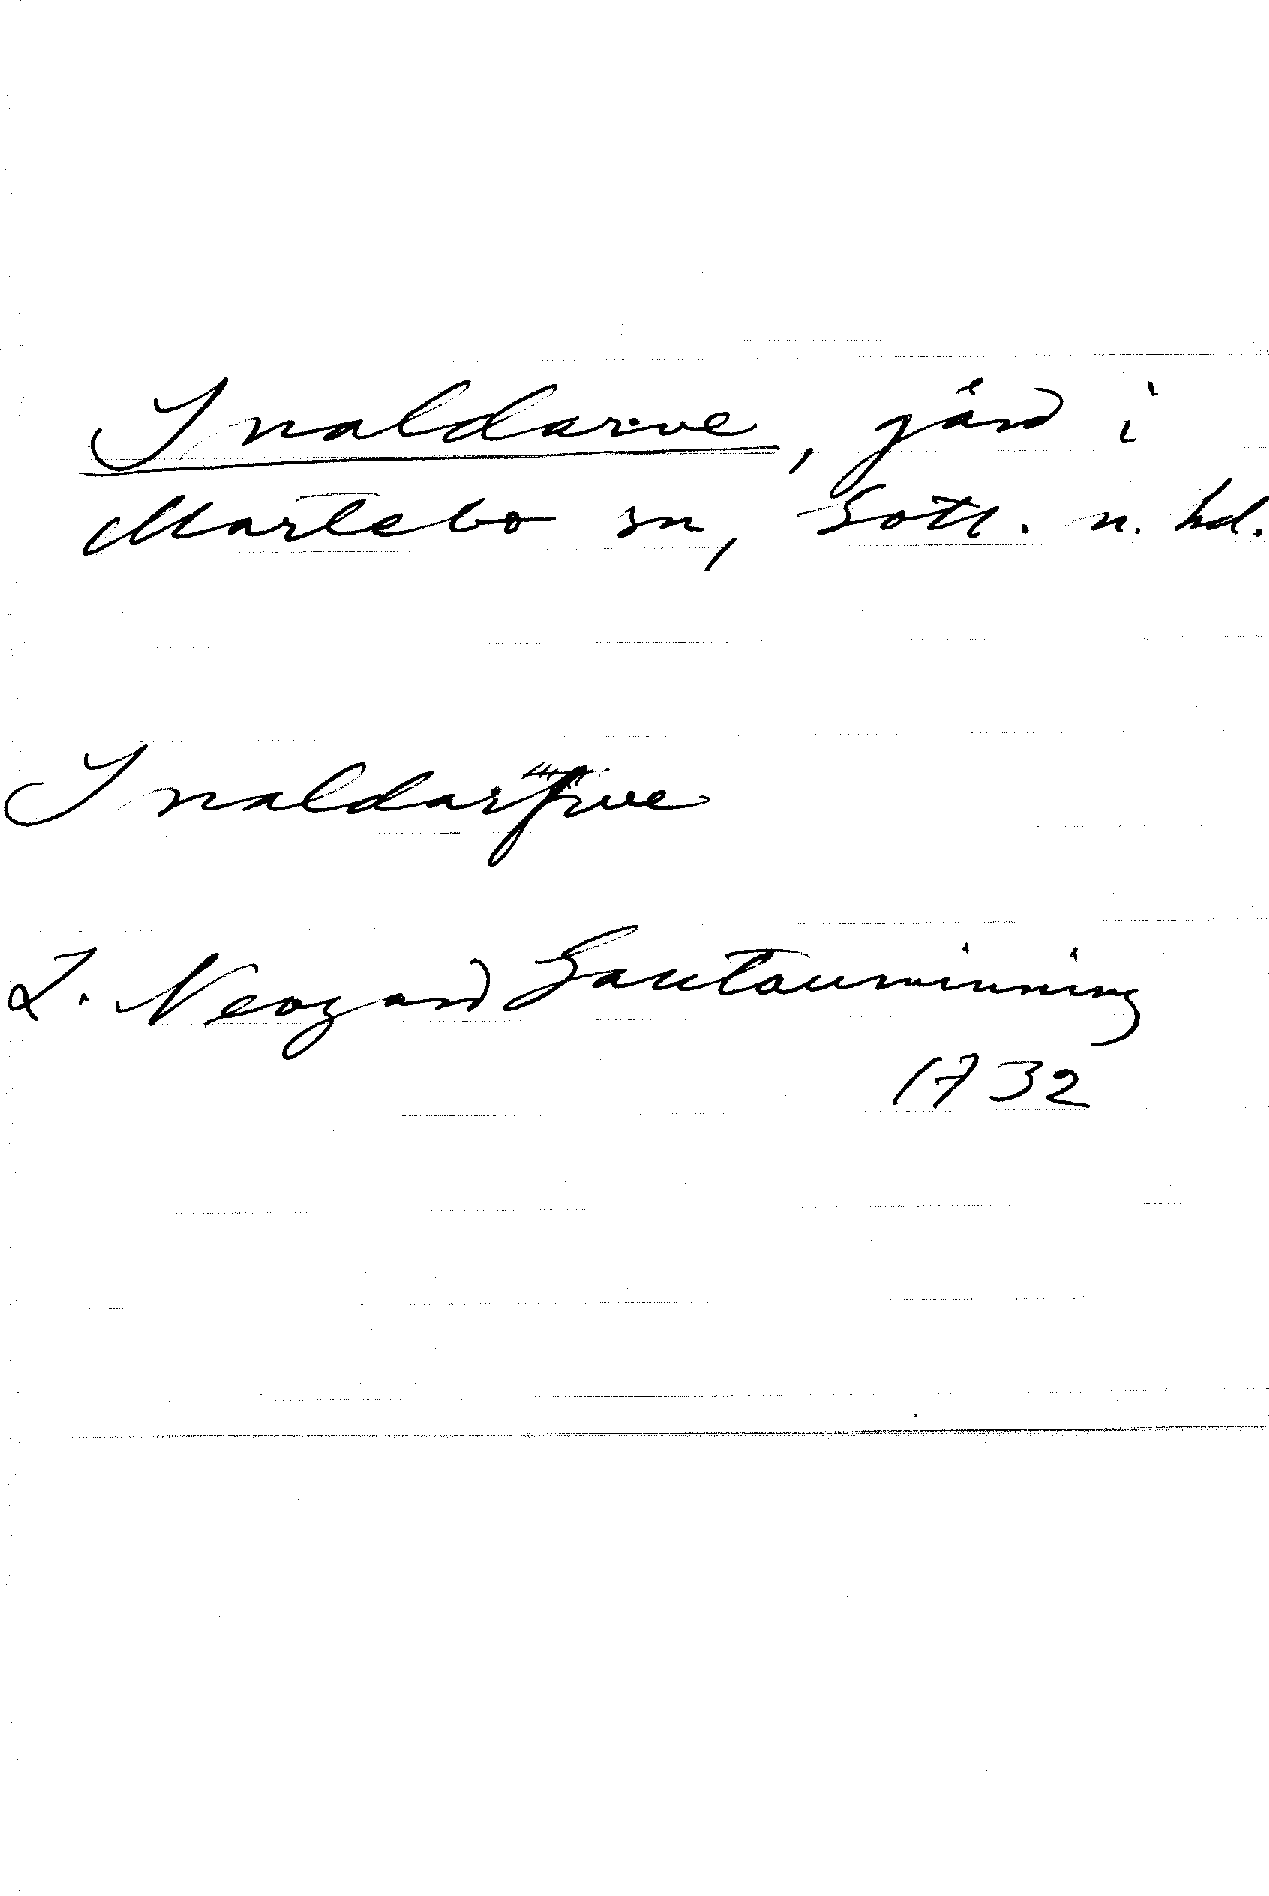 Inaldarve, gård i
Martebo sn, Gotl. n. hd.
Inaldarfwe
L. Neogard Gautauminning
1732